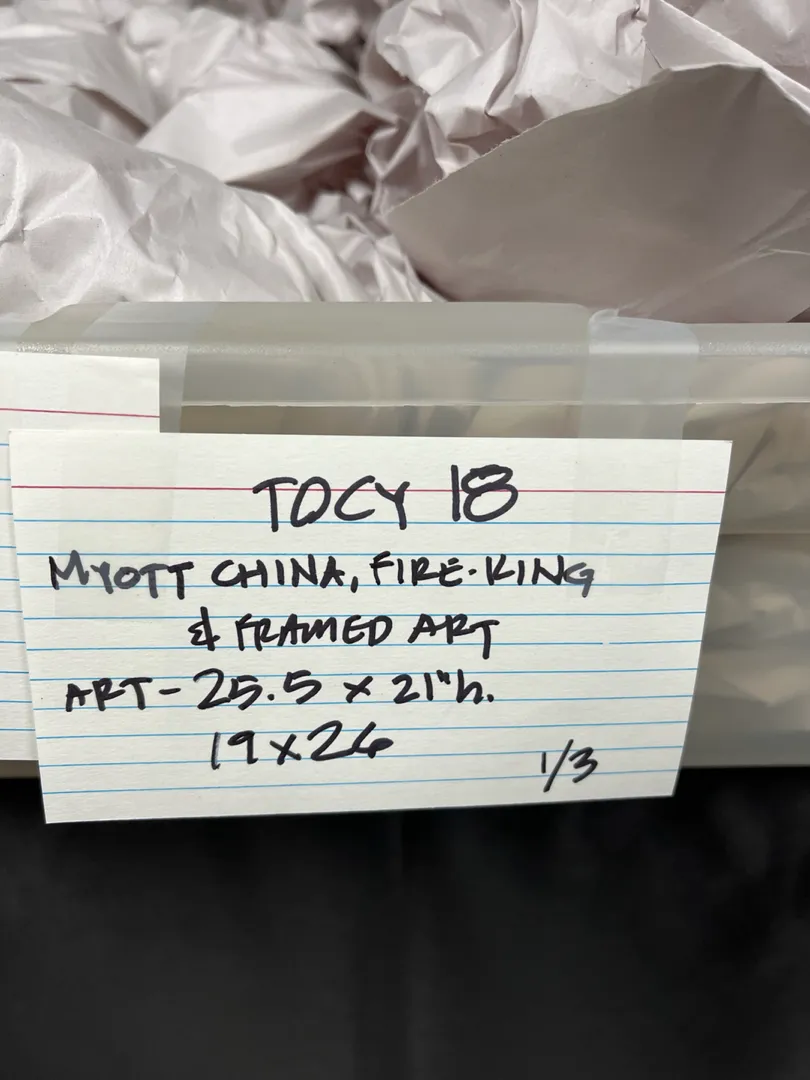 TOCY 18
MYOTT CHINA, FIRE-KING
& FRAMED ART
ART - 25.5 x 21"h.
19 x 26
1/3